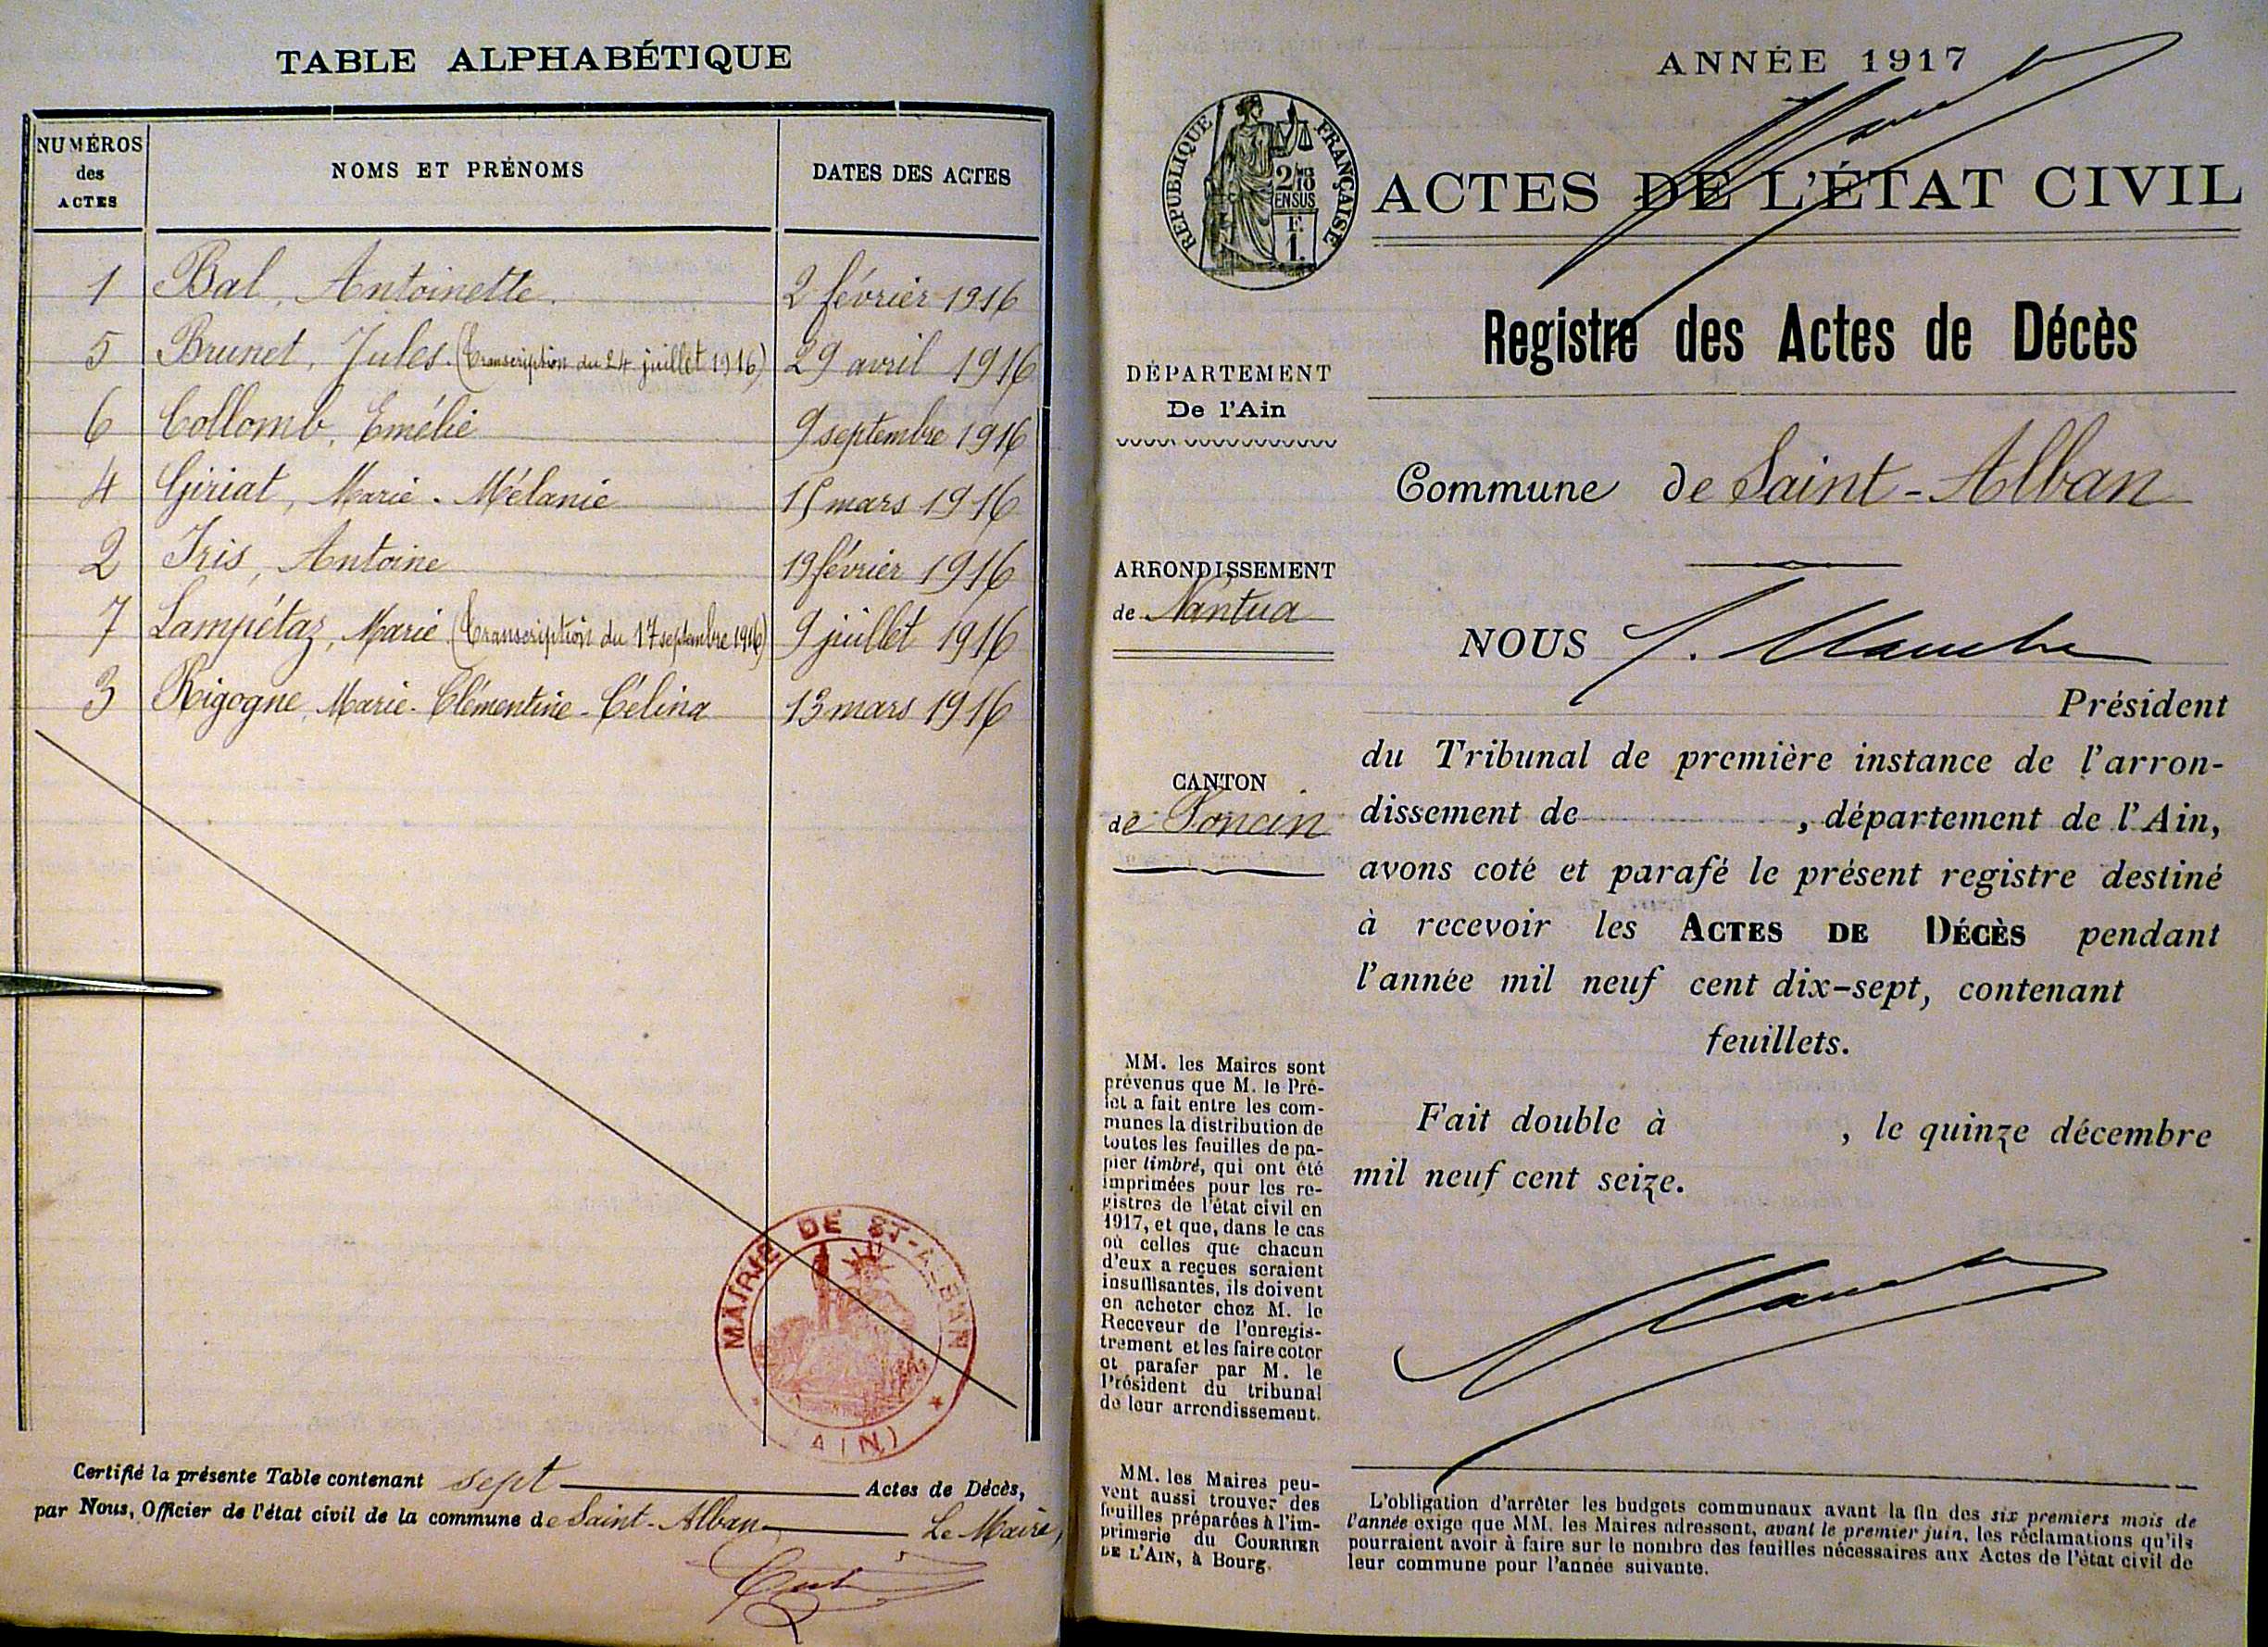 TABLE ALPHABÉTIQUE
NUMÉROS des ACTES NOMS ET PRÉNOMS DATES DES ACTES
1 Bal, Antoinette. 2 février 1916
5 Brunet, Jules. (Transcription du 24 juillet 1916) 29 avril 1916
6 Collomb, Emélie 9 septembre 1916
4 Giriat, Marie-Mélanie 15 mars 1916
2 Iris, Antoine 19 février 1916
7 Lampétaz, Marie (Transcription du 17 septembre 1916) 9 juillet 1916
3 Rigogne, Marie-Clémentine-Célina 13 mars 1916
MAIRIE DE ST-ALBAN
(AIN)
Certifié la présente Table contenant sept Actes de Décès,
par Nous, Officier de l'état civil de la commune de Saint-Alban Le Maire,
ANNÉE 1917
RÉPUBLIQUE FRANÇAISE
2/10
EN SUS
F.
1.
ACTES DE L'ÉTAT CIVIL
Registre des Actes de Décès
DÉPARTEMENT
De l'Ain
Commune de Saint-Alban
ARRONDISSEMENT
de Nantua
CANTON
de Poncin
NOUS
Président
du Tribunal de première instance de l'arron-
dissement de , département de l'Ain,
avons coté et parafé le présent registre destiné
à recevoir les ACTES DE DÉCÈS pendant
l'année mil neuf cent dix-sept, contenant
feuillets.
Fait double à , le quinze décembre
mil neuf cent seize.
MM. les Maires sont
prévenus que M. le Pré-
fet a fait entre les com-
munes la distribution de
toutes les feuilles de pa-
pier timbré, qui ont été
imprimées pour les re-
gistres de l'état civil en
1917, et que, dans le cas
où celles que chacun
d'eux a reçues seraient
insuffisantes, ils doivent
en acheter chez M. le
Receveur de l'enregis-
trement et les faire coter
et parafer par M. le
Président du tribunal
de leur arrondissement.
MM. les Maires peu-
vent aussi trouver des
feuilles préparées à l'im-
primerie du COURRIER
DE L'AIN, à Bourg.
L'obligation d'arrêter les budgets communaux avant la fin des six premiers mois de
l'année exige que MM. les Maires adressent, avant le premier juin, les réclamations qu'ils
pourraient avoir à faire sur le nombre des feuilles nécessaires aux Actes de l'état civil de
leur commune pour l'année suivante.